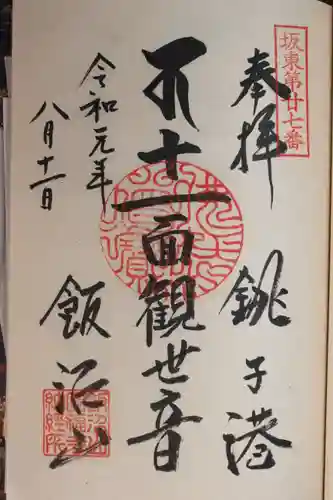 坂東第廿七番
奉拝　銚子港
十一面観世音
令和元年
八月十一日
飯沼山